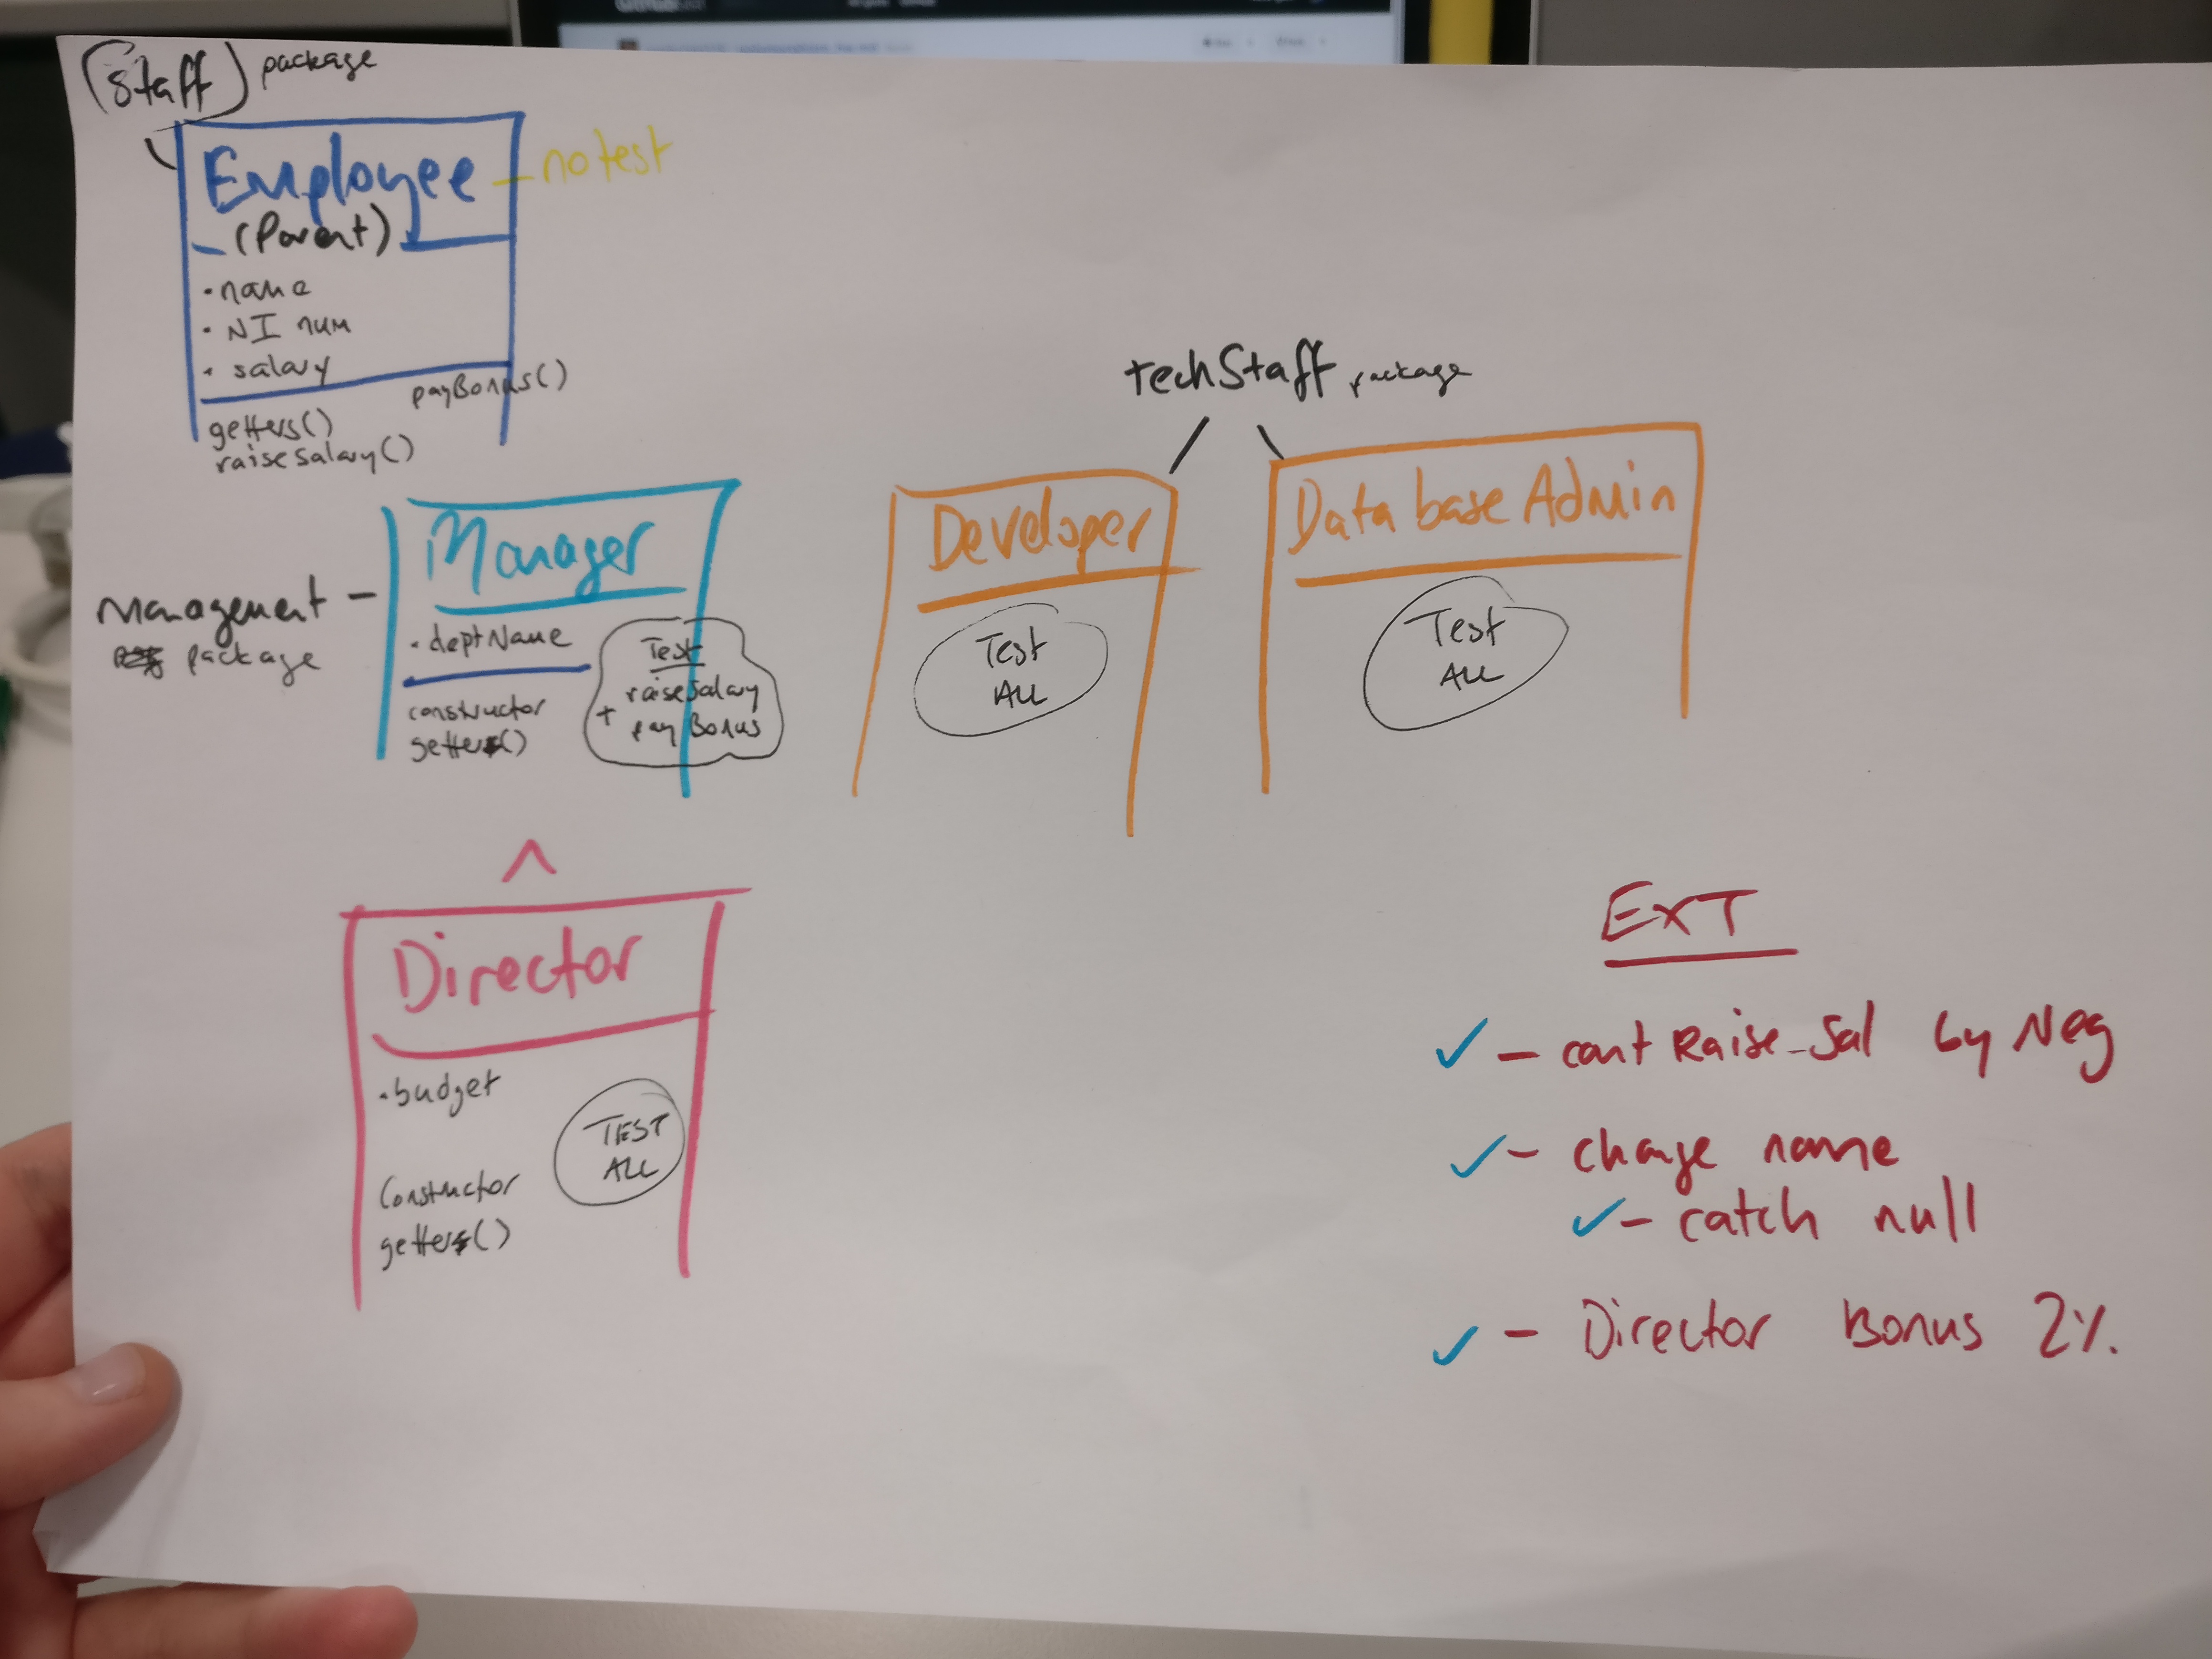 (staff) package
Employee - no test
(Parent)
• name
• NI num
• salary
payBonus()
getters()
raiseSalary()
techStaff package
Manager
Management - package
• deptName
constructor
getters()
Test
raiseSalary
+ payBonus
Developer
Test
ALL
Database Admin
Test
ALL
^
Director
• budget
Constructor
getters()
TEST
ALL
EXT
✓ - cant Raise_Sal by Neg
✓ - change name
✓ - catch null
✓ - Director Bonus 2%.